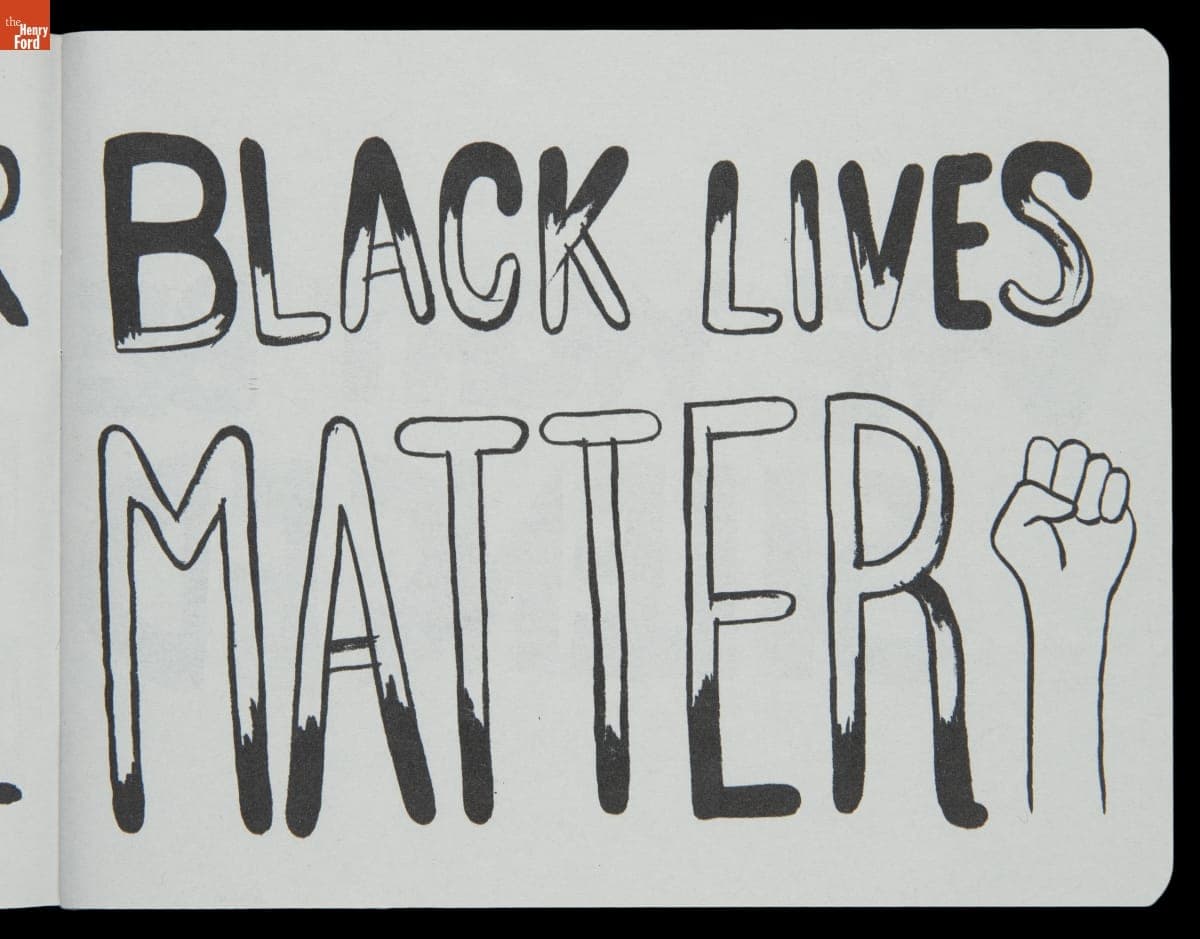 the
Henry
Ford
BLACK LIVES
MATTER